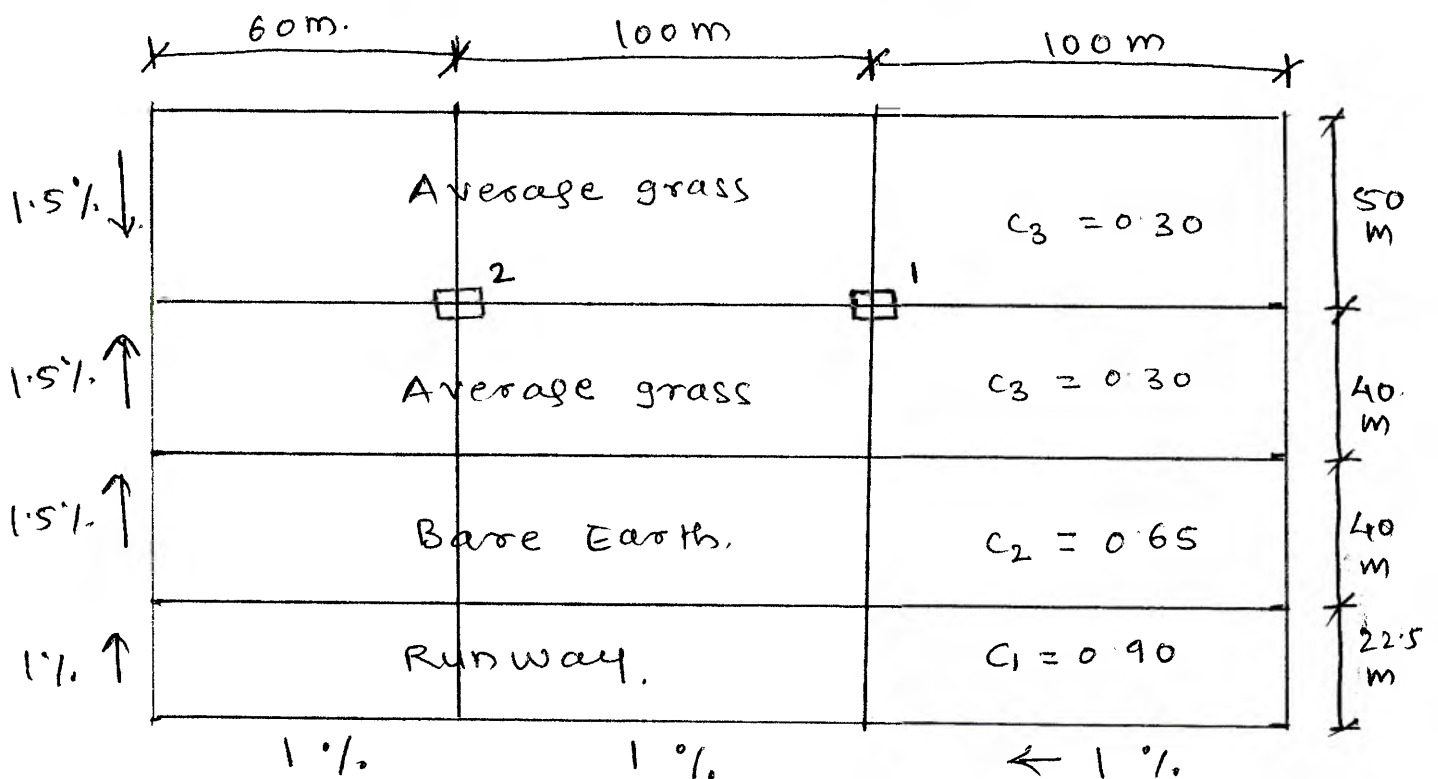 60m. 100m 100m
1.5%. ↓ Average grass C3 = 0.30 50 m
2 1
1.5%. ↑ Average grass C3 = 0.30 40. m
1.5%. ↑ Bare Earth. C2 = 0.65 40 m
1%. ↑ Runway. C1 = 0.90 22.5 m
1%. 1%. ← 1%.